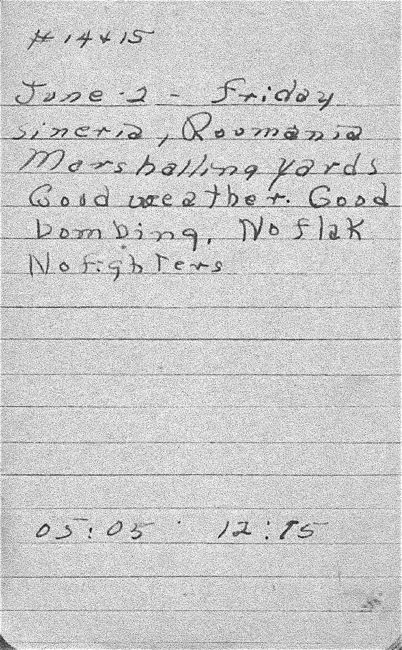 # 14 & 15
June 2 - Friday
Simeria, Roomania
Marshalling yards
Good weather. Good
bombing. No flak
No fighters
05:05 12:15